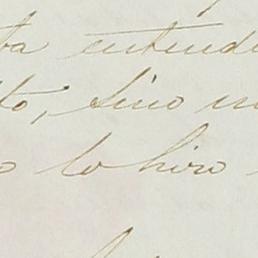 ba entende
to, sino m
o lo hiro